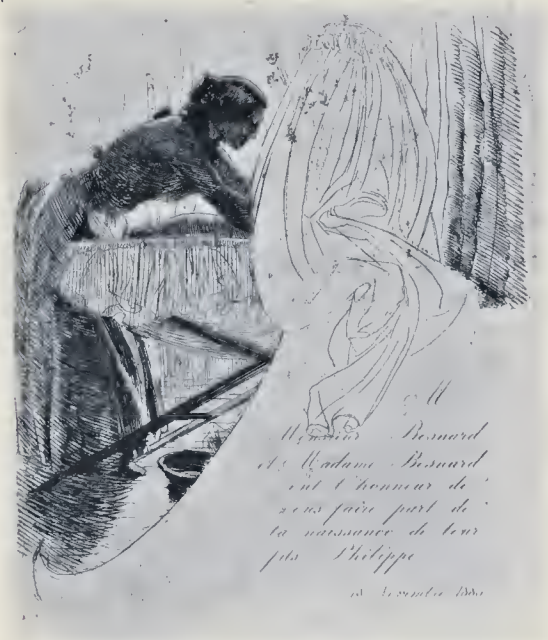 M
Monsieur Besnard
et Madame Besnard
ont l'honneur de
vous faire part de
la naissance de leur
fils Philippe
Novembre